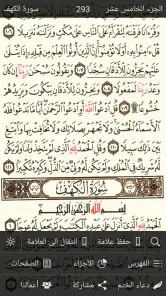 الجزء الخامس عشر 293 سورة الكهف
وقرءانا فرقناه لتقرأه على الناس على مكث ونزلناه تنزيلا ١٠٦
قل ءامنوا به أو لا تؤمنوا إن الذين أوتوا العلم من قبله إذا يتلى
عليهم يخرون للأذقان سجدا ١٠٧ ويقولون سبحان ربنا إن كان
وعد ربنا لمفعولا ١٠٨ ويخرون للأذقان يبكون ويزيدهم
خشوعا ١٠٩ قل ادعوا الله أو ادعوا الرحمن أيا ما تدعوا فله
الأسماء الحسنى ولا تجهر بصلاتك ولا تخافت بها وابتغ بين
ذلك سبيلا ١١٠ وقل الحمد لله الذي لم يتخذ ولدا ولم يكن له
شريك في الملك ولم يكن له ولي من الذل وكبره تكبيرا ١١١
سورة الكهف
بسم الله الرحمن الرحيم
الحمد لله الذي أنزل على عبده الكتاب
حفظ علامة
انتقال الى العلامة
الفهرس
الأجزاء
الصفحات
دعاء الختم
مشاركة
أعمالنا